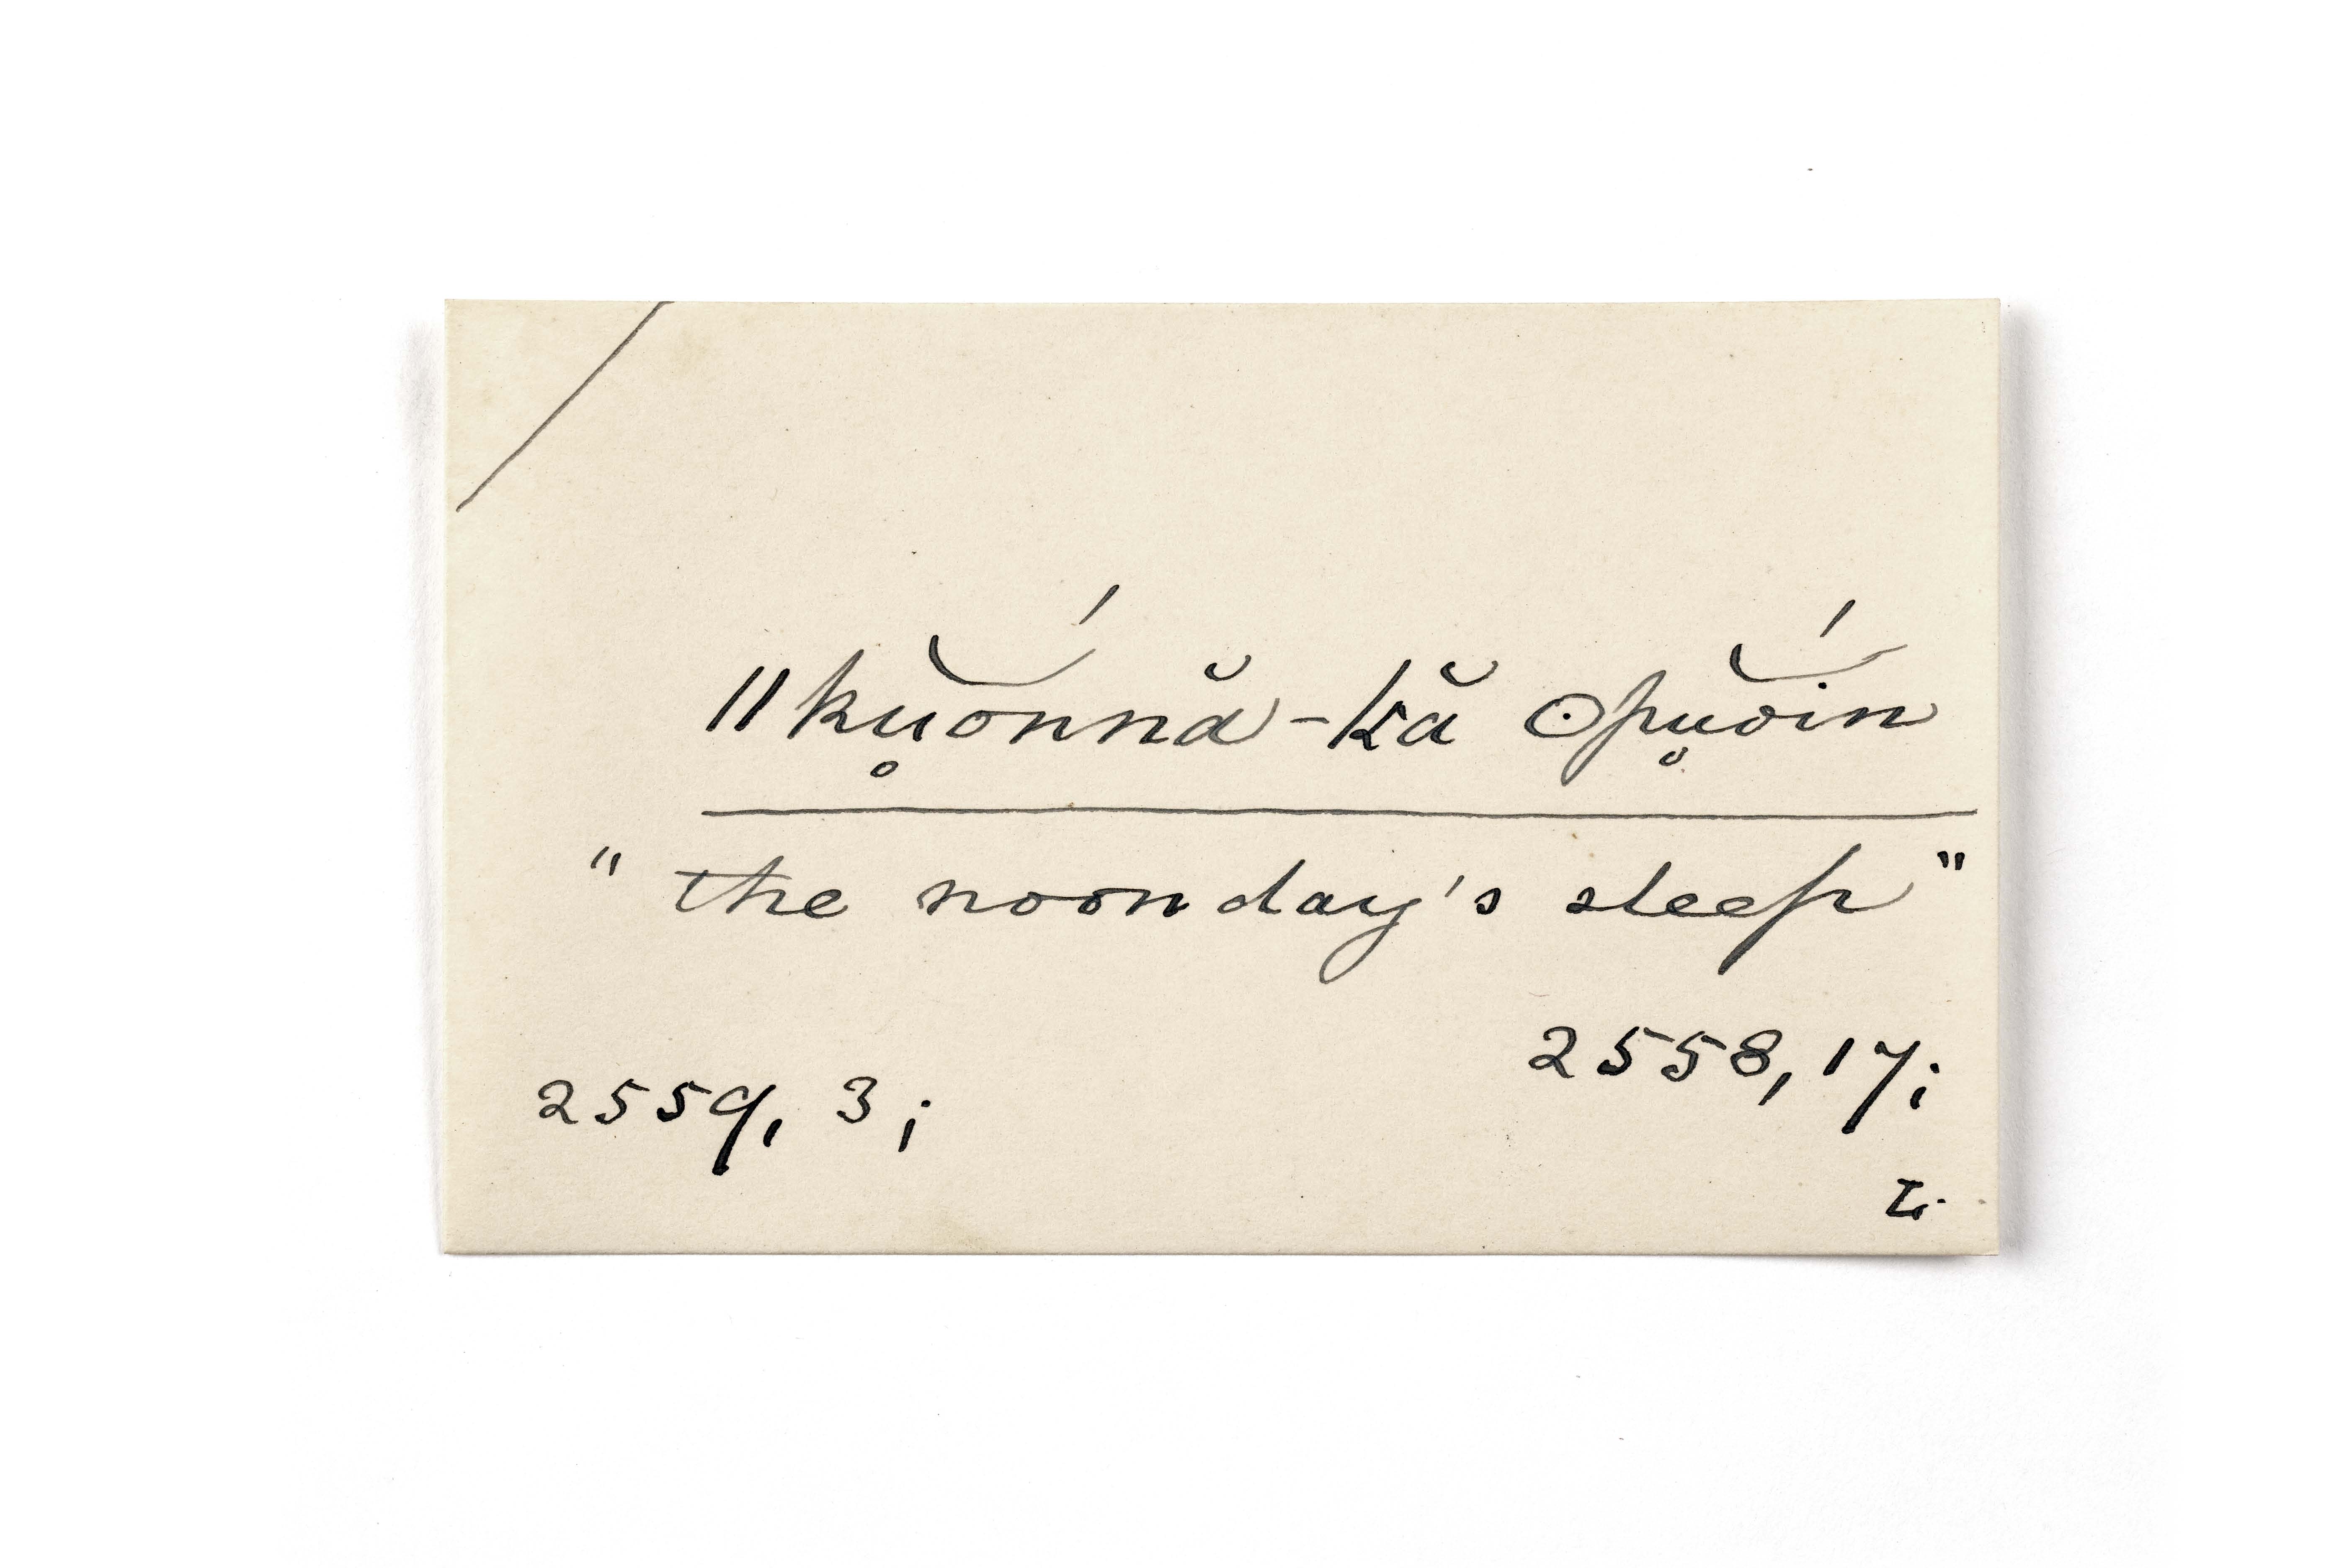 ǁkŭ̥ŏ́nnă-kă ʘpŭ̥ŏ́in
" the noonday's sleep "
2558, 17;
2559, 3;
L.